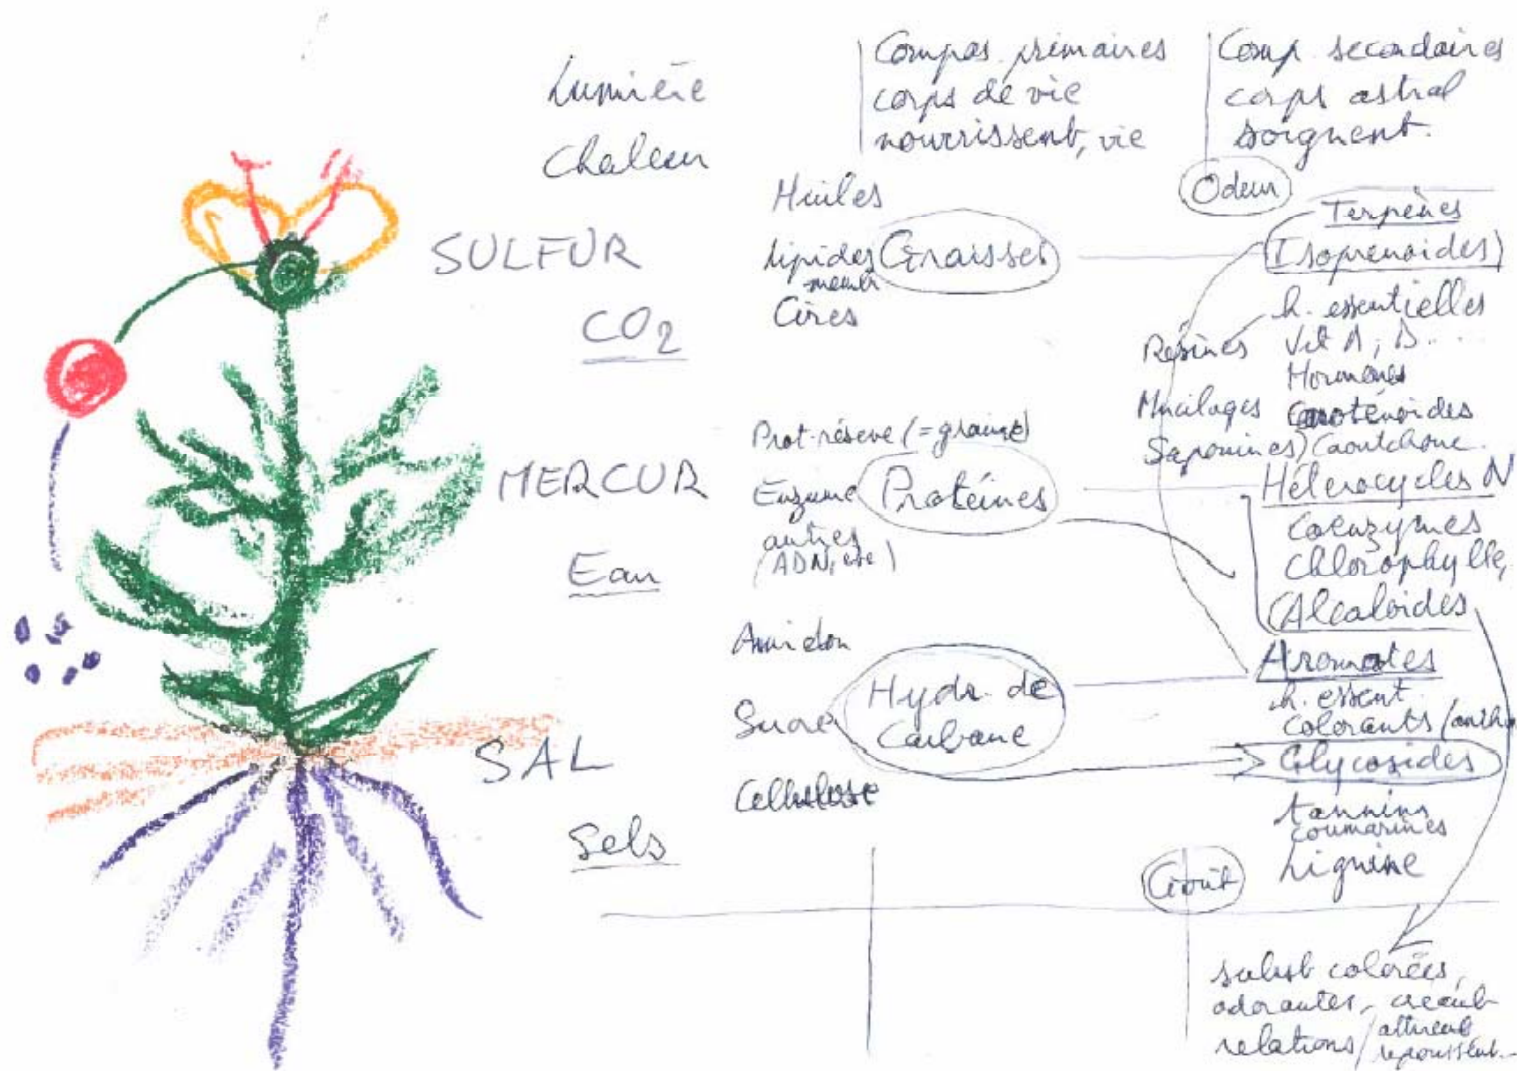 Lumière
Chaleur
SULFUR
CO2
MERCUR
Eau
SAL
Sels
Compos. primaires
corps de vie
nourrissent, vie
Huiles
Lipides Graisses
membr
Cires
Prot-réserve (=graine)
Enzyme Protéines
autres
(ADN, etc)
Amidon
Sucre Hydr. de
Carbone
Cellulose
Comp. secondaires
corps astral
soignent.
Odeur
Terpènes
Isoprénoides)
h. essentielles
Résines Vit A, D...
Hormones
Mucilages Caroténoides
Saponines) Caoutchouc.
Hélerocycles N
Coenzymes
Chlorophylle,
(Alcaloides
Aromates
h. essent.
Colorants (antho
Glycosides
tannins
coumarines
Lignine
Goût
subst colorées,
odorantes, créent
relations / attirent
repoussent.